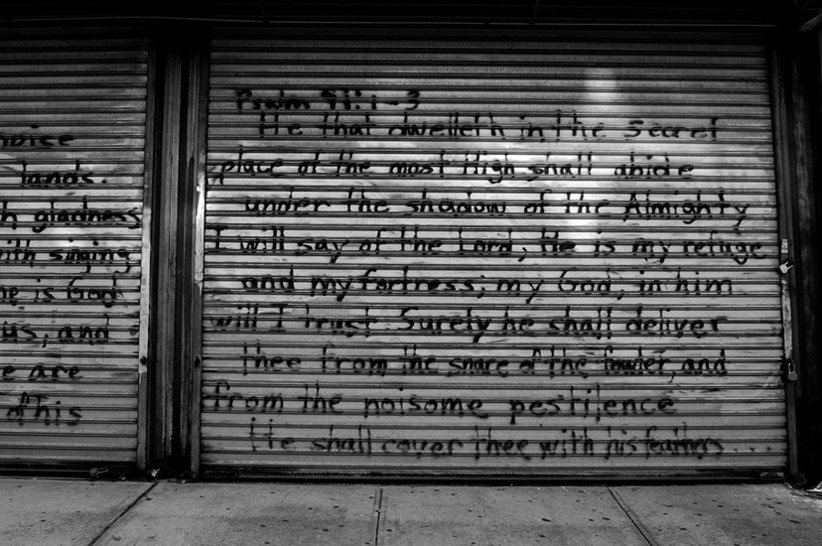 noice
lands.
h gladness
with singing
he is God
us, and
e are
of His
Psalm 91:1-3
He that dwelleth in the Secret
place of the most High shall abide
under the shadow of the Almighty
I will say of the Lord, He is my refuge
and my fortress; my God, in him
will I trust. Surely he shall deliver
thee from the snare of the fowler, and
from the noisome pestilence
He shall cover thee with his feathers...